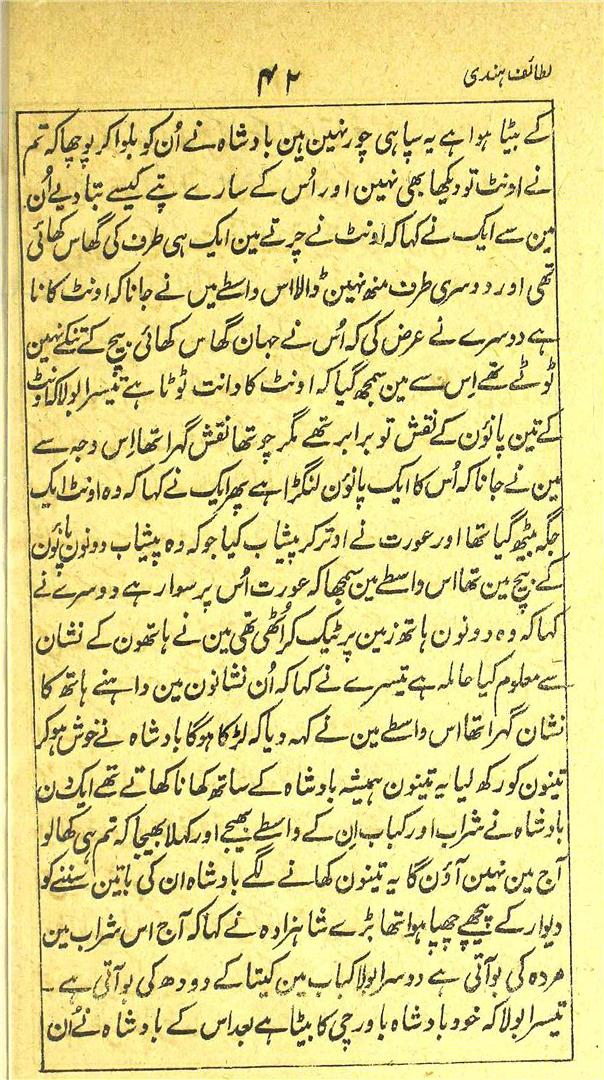 لطائف ہندی
۴۲
کے بیٹا ہوا ہے یہ سپاہی چور نہین ہین بادشاہ نے اُن کو بلوا کر پوچھا کہ تم
نے اونٹ تو دیکھا بھی نہین اور اُس کے سارے پتے کیسے بتا دیے اُن
مین سے ایک نے کہا کہ اونٹ نے چرتے مین ایک ہی طرف کی گھاس کھائی
تھی اور دوسری طرف منھ نہین ڈالا اس واسطے میں نے جانا کہ اونٹ کانا
ہے دوسرے نے عرض کی کہ اُس نے جہان گھاس کھائی بیچ کے تنکے نہین
ٹوٹے تھے اِس سے مین سمجھ گیا کہ اونٹ کا دانت ٹوٹا ہے تیسرا بولا کہ اونٹ
کے تین پانؤن کے نقش تو برابر تھے مگر چوتھا نقش گہرا تھا اِس وجہ سے
مین نے جانا کہ اُس کا ایک پانؤن لنگڑا ہے پھر ایک نے کہا کہ وہ اونٹ ایک
جگہ بیٹھ گیا تھا اور عورت نے اوتر کر پیشاب کیا جو کہ وہ پیشاب دونون پانؤن
کے بیچ مین تھا اس واسطے مین سمجھا کہ عورت اُس پر سوار ہے دوسرے نے
کہا کہ وہ دونون ہاتھ زمین پر ٹیک کر اُٹھی تھی مین نے ہاتھون کے نشان
سے معلوم کیا حاملہ ہے تیسرے نے کہا کہ اُن نشانون مین داہنے ہاتھ کا
نشان گہرا تھا اس واسطے مین نے کہہ دیا کہ لڑکا ہوگا بادشاہ نے خوش ہو کر
تینون کو رکھ لیا یہ تینون ہمیشہ بادشاہ کے ساتھ کھانا کھاتے تھے ایک دن
بادشاہ نے شراب اور کباب اِن کے واسطے بھیجے اور کہلا بھیجا کہ تم ہی کھا لو
آج مین نہین آؤن گا یہ تینون کھانے لگے بادشاہ ان کی باتین سننے کو
دیوار کے پیچھے چھپا ہوا تھا بڑے شاہزادہ نے کہا کہ آج اس شراب مین
مردہ کی بو آتی ہے دوسرا بولا کباب مین کیتا کے دودھ کی بو آتی ہے ۔
تیسرا بولا کہ خود بادشاہ باورچی کا بیٹا ہے بعد اس کے بادشاہ نے اُن